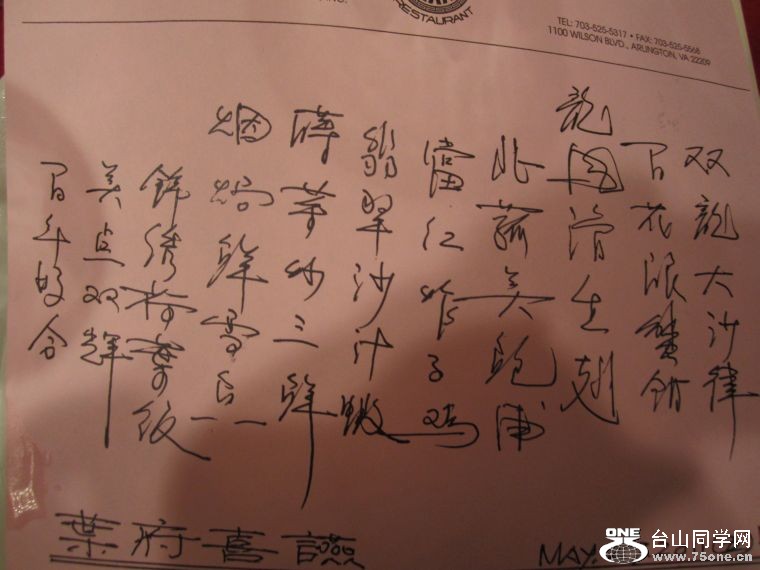 RESTAURANT
TEL: 703-525-5317 • FAX: 703-525-5568
1100 WILSON BLVD., ARLINGTON, VA 22209
双龍大沙律
百花浪蟹鉗
龍滑生翅
北菰美鲍甫
當红炸子鸡
翡翠沙汁蝦
炒三鲜
烟焗鲜雪
锦绣荷葉饭
美点双辉
百年好合
葉府喜讌
MAY.
ONE 台山同学网
www.75one.cn